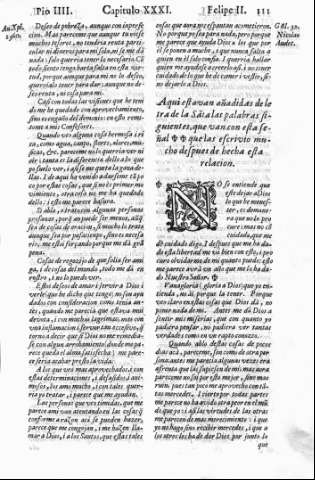 Pio IIII. Capitulo XXXI. Felipe II. 111
Deseo de pobreza, aunque con imperfe
cion. Mas pareceme que aunque tu viese
muchos tesoros, no tendria renta parti
cular ni dineros para mi sola, ni se me dà
nada: solo querria tener lo necesario. Cõ
todo siento tengo harta falta en esta vir
tud, porque aunque para mi no lo deseo,
querrialo tener para dar: aunque no de-
seo renta, ni cosa para mi.
Casi con todas las visiones que he teni
do me he quedado con aprovechamiento,
sino es engaño del demonio: en esto remi
tome a mis Confesores.
Quando veo alguna cosa hermosa i ri
ca, como agua, campo, flores, olores, mu-
sicas, &c. pareceme no lo querria ver ni
oir: tanta es la diferencia dello a lo que
yo suelo ver, i asi se me quita la gana de-
llas. I de aqui he venido a darseme tã po
co por estas cosas, que si no es primer mo
vimiento, otra cosa no me ha quedado
dello: i esto me parece basura.
Si ablo, i trato con algunas personas
profanas, porq no puede ser menos, aũ q̃
sea de cosas de oracion, si mucho lo trato
aunque sea por pasatiempo, si no es necesa
rio, me estoi forçando porque me dà grã
pena.
Cosas de regozijo de que solia ser ami
ga, i de cosas del mundo, todo me dà en
rostro, i no lo puedo ver.
Estos deseos de amar i servir a Dios i
verle: que he dicho que tengo, no son ayu
dados con consideracion como tenia an-
tes, quando me parecia que estava mui
devota, i con muchas lagrimas, mas con
una inflamacion i fervor tan eccesivo, q̃
torno a decir que si Dios no me remedia-
se con algun arrobamiento, donde me pa-
rece queda el alma satisfecha, me pare-
ce seria acabar presto la vida.
A los que veo mas aprovechados i con
estas determinaciones, i desasidos i ani-
mosos, los amo mucho, i con tales quer-
ria yo tratar, i parece que me ayudan.
Las personas que veo timidas, que me
parece a mi van atentando en las cosas q̃
conforme a razon acà se pueden hazer,
parece que me congojan, i me hazen lla-
mar a Dios, i a los Santos, que estas tales
cosas que aora nos espantan acometieron.
No porque yo sea para nada, pero porque
me parece que ayuda Dios a los que por
èl se ponen a mucho, i que nunca falta a
quien en èl solo confia. I querria hallar
quien me ayudase a creerlo asi, i no tener
cuidado de lo que he de comer i vestir, si-
no dexarlo a Dios.
Aqui estavan añadidas de le
tra de la Sãta las palabras si
guientes, que van con esta se
ñal ✠ ✠ que las escrivio mu
cho despues de hecha esta
relacion.
NO se entienda que
este dejar a Dios
lo que he menes-
ter, es de mane-
ra que no lo pro
cure: mas no cõ
cuidado, que me
dè cuidado digo. I despues que me ha da-
do esta libertad me va bien con esto, i pro
curo olvidarme de mi quanto puedo: esto
me parece avrà un año que me lo ha da-
do Nuestro Señor. ✠
Vanagloria i, gloria a Dios, que yo en-
tienda, no ai porque la tener. Porque
veo claro en estas cosas que Dios dà, no
poner nada de mi. Antes me dà Dios a
sentir mis miserias, que con quanto yo
pudiera pensar, no pudiera ver tantas
verdades como en un rapto conozco.
Quando ablo destas cosas de pocos
dias acà, pareceme, son como de otra per
sona: antes me parecia algunas vezes era
afrenta que las supiesen de mi: mas aora
pareceme no soi por esto mejor, sino mas
ruin, pues tan poco me aprovecho con tan
tas mercedes. I cierto por todas partes
me parece no ha avido otra peor en el mũ
do que yo: i asi las virtudes de los otros
me parecen de mas merecimiento: i que
yo no hago sino recibir mercedes, i que a
los otros les ha de dar Dios por junto lo
que
Añ. Xpī.
1560.
Gẽl. 30.
Nicolao
Audet.